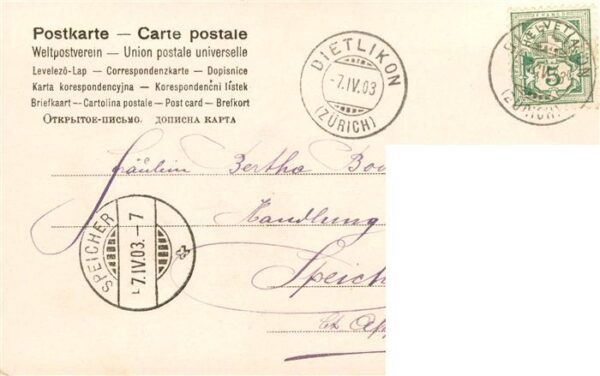 Postkarte — Carte postale
Weltpostverein — Union postale universelle
Levelező-Lap — Correspondenzkarte — Dopisnice
Karta korespondencyjna — Korespondenční lístek
Briefkaart — Cartolina postale — Post card — Brefkort
Открытое-письмо. дописна карта
DIETLIKON
-7.IV.03
(ZÜRICH)
HELVETIA
5
Fräulein Bertha
Handlung
SPEICHER
-7.IV.03.-7